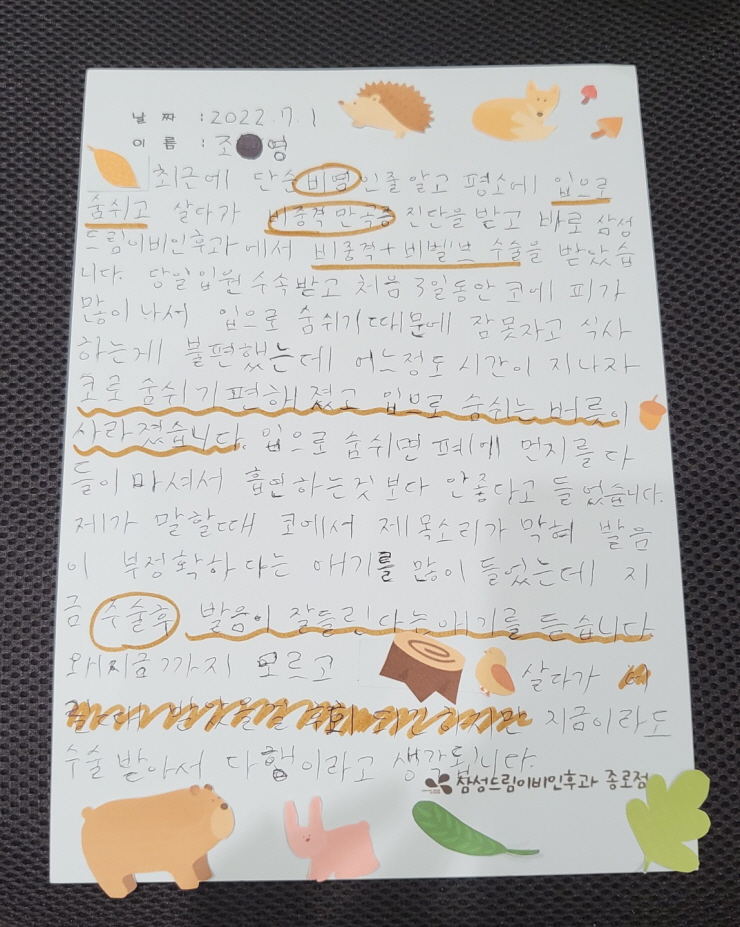 날 짜 : 2022.7.1
이 름 : 조 영
최근에 단순 비염인줄 알고 평소에 입으로
숨쉬고 살다가 비중격 만곡증 진단을 받고 바로 삼성
드림이비인후과에서 비중격+비밸브 수술을 받았습
니다. 당일입원 수속받고 처음 3일동안 코에 피가
많이 나서 입으로 숨쉬기 때문에 잠못자고 식사
하는게 불편했는데 어느정도 시간이 지나자
코로 숨쉬기 편해졌고 입으로 숨쉬는 버릇이
사라졌습니다. 입으로 숨쉬면 폐에 먼지를 다
들이 마셔서 흡연하는것보다 안좋다고 들었습니다.
제가 말할때 코에서 제 목소리가 막혀 발음
이 부정확하다는 얘기를 많이 들었는데 지
금 수술후 발음이 잘들린다는 얘기를 듣습니다.
왜 지금까지 모르고 살다가
지금이라도
수술 받아서 다행이라고 생각됩니다.
삼성드림이비인후과 종로점